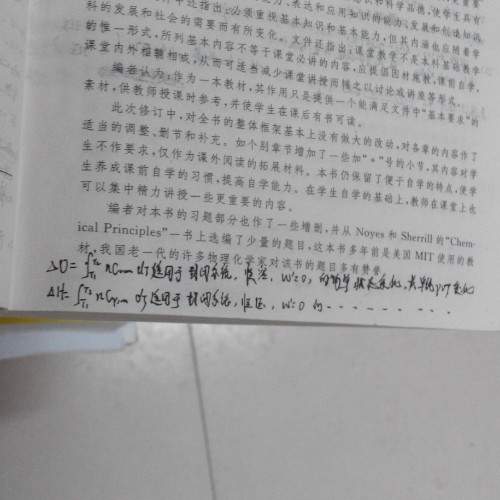 科的发展和社会的需要而有所变化。文件还指出:课堂教学不是本科基础教学
的惟一形式,所列基本内容不等于课堂必讲的内容,应提倡因材施教,课前自学,
课堂内外相辅相成,从而可适当减少课堂讲授
编者认为,作为一本教材,其作用只是提供一个能满足文件中“基本要求”的
素材,供教师授课时参考,并使学生在课后有书可读。
此次修订中,对全书的整体框架基本上没有做大的改动,对各章的内容作了
适当的调整、删节和补充。如个别章节增加了一些加“*”号的小节,其内容对学
生不作要求,仅作为课外阅读的拓展材料。本书仍保留了便于自学的特点,使学
生养成课前自学的习惯,提高自学能力。在学生自学的基础上,教师在课堂上也
可以集中精力讲授一些更重要的内容。
编者对本书的习题部分也作了一些增删,并从 Noyes 和 Sherrill 的“Chem-
ical Principles”一书上选编了少量的题目,这本书多年前是美国 MIT 使用的教
材,我国老一代的许多物理化学家对该书的题目多有赞誉。
ΔU=∫T1T2 nCv,m dT 适用于封闭系统,恒容,W'=0,的简单状态变化
ΔH=∫T1T2 nCp,m dT 适用于封闭系统,恒压,W'=0 的